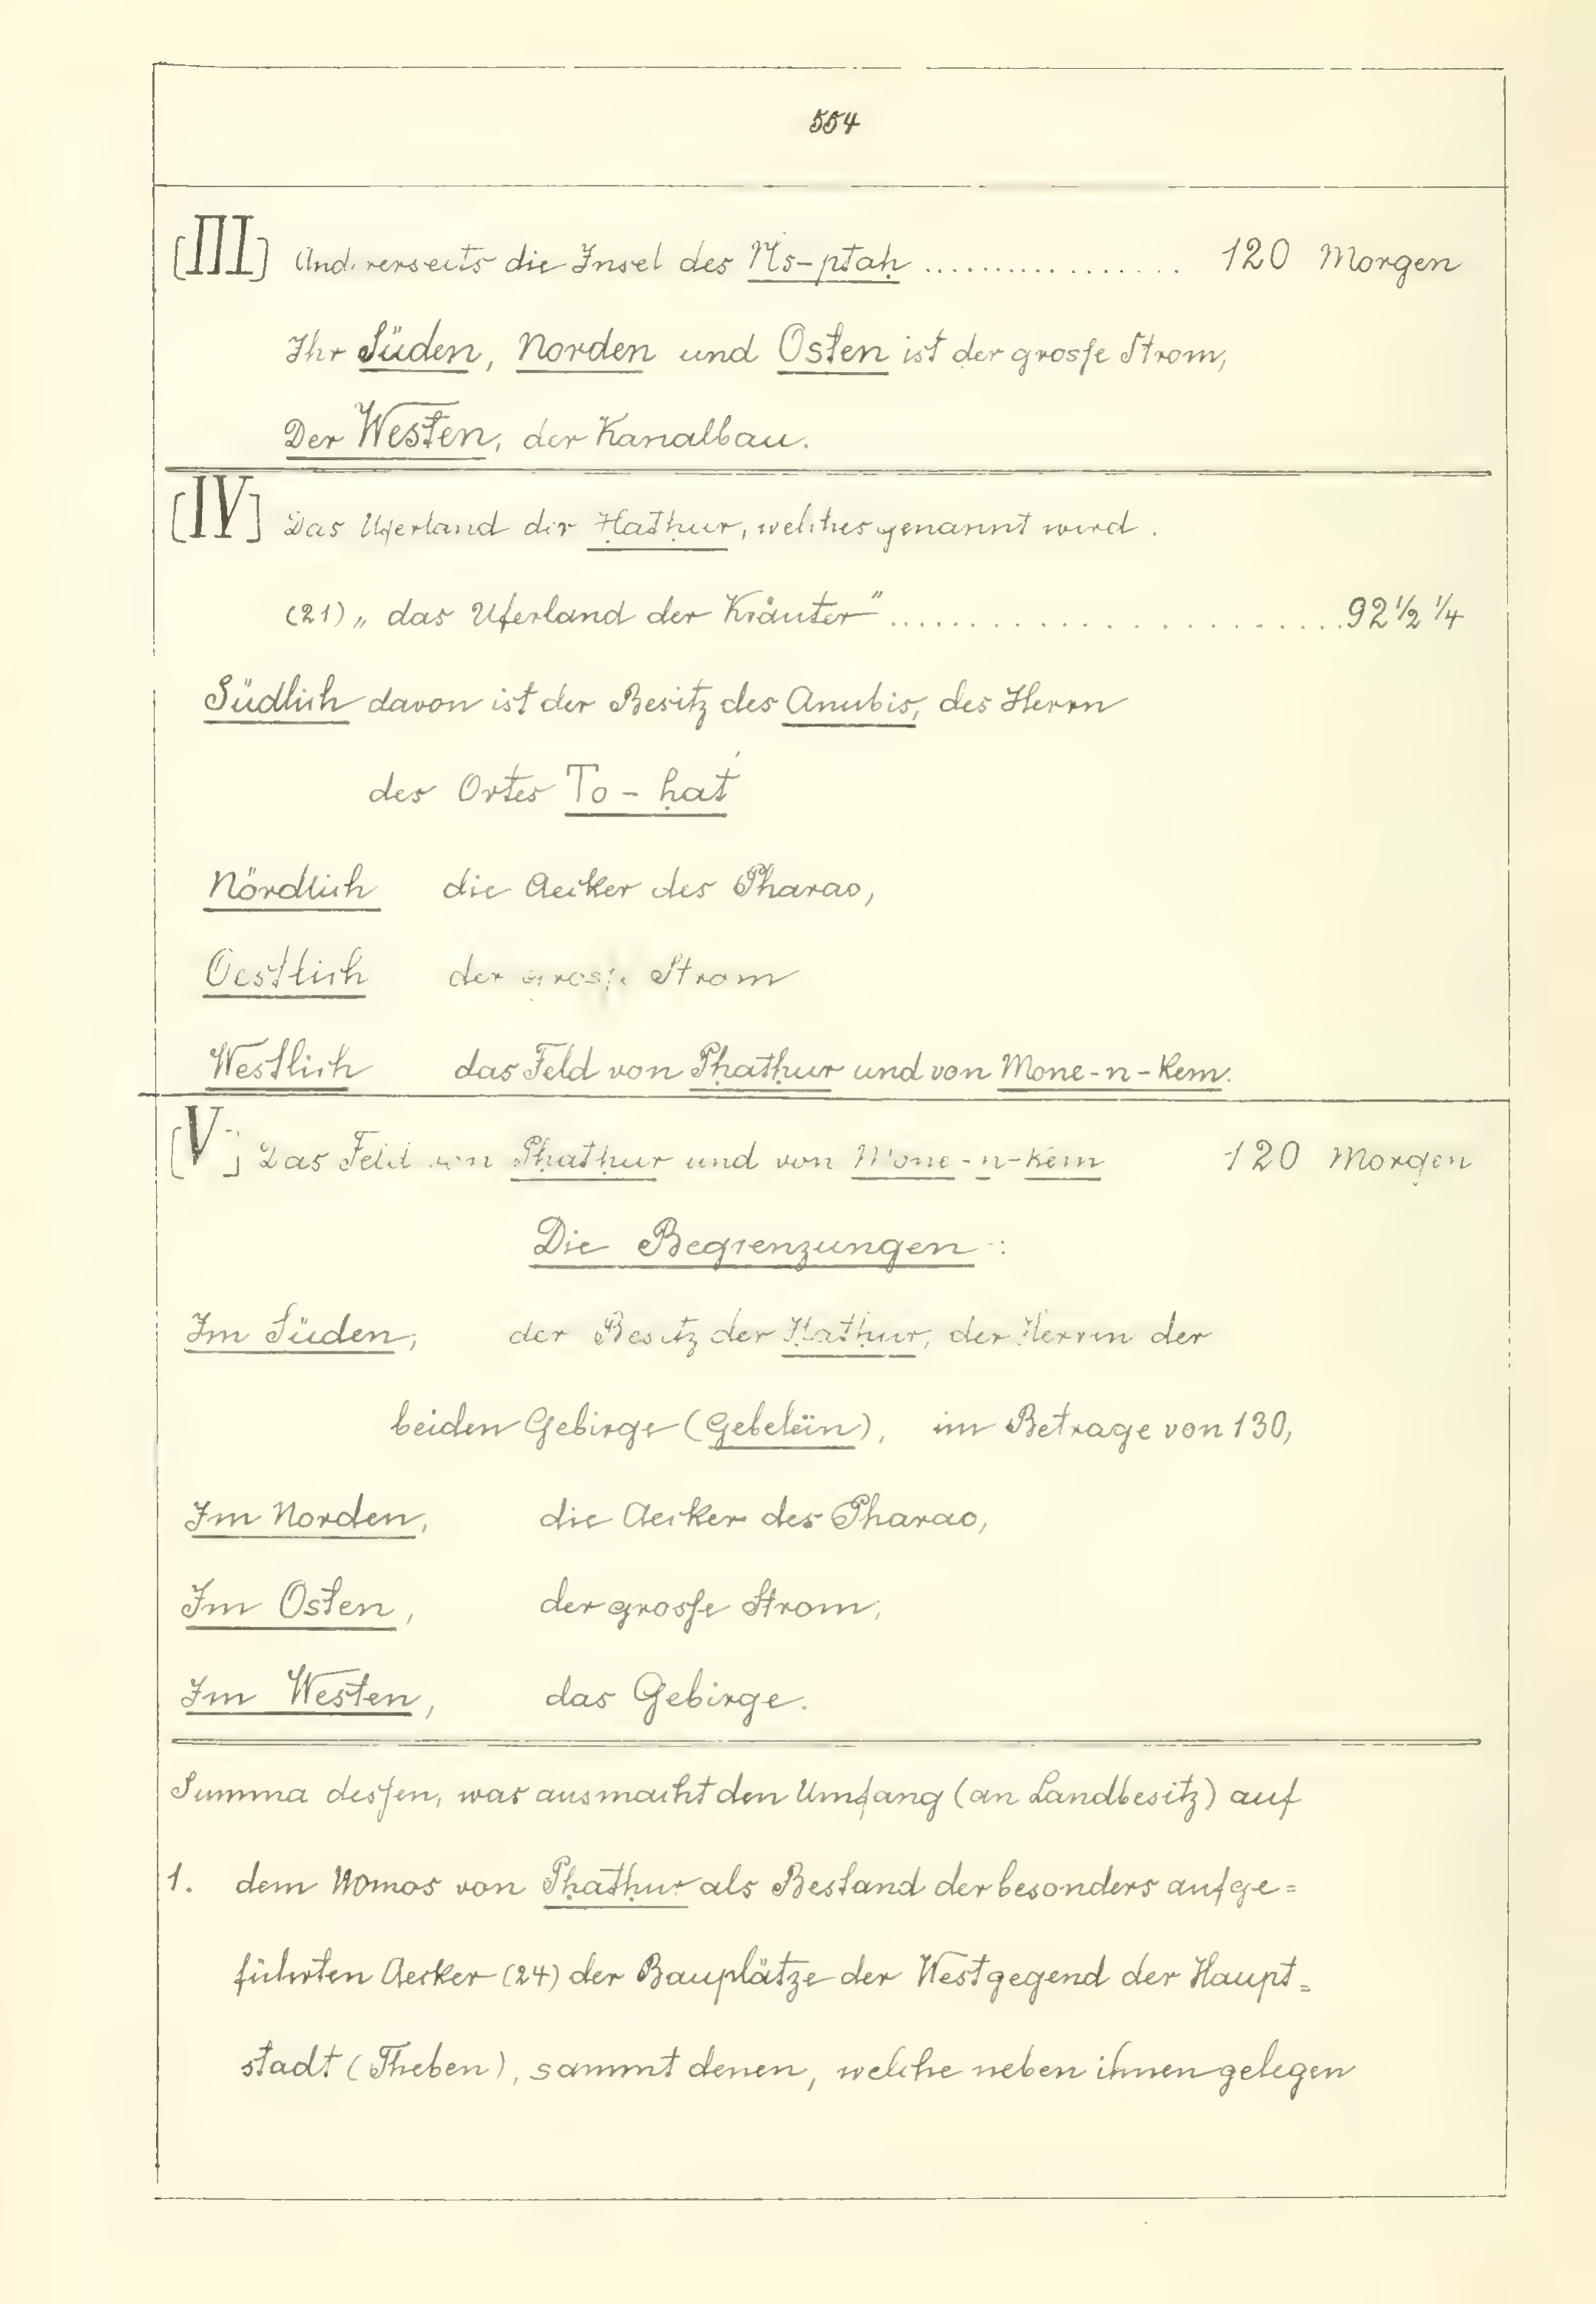 554
[III] Andererseits die Insel des Ns-ptaḥ ................. 120 Morgen
Ihr Süden, Norden und Osten ist der grosse Strom,
Der Westen, der Kanalbau.
[IV] Das Uferland der Ḥatḥur, welches genannt wird.
(21) „das Uferland der Kräuter" ........................ 92 ½ ¼
Südlich davon ist der Besitz des Anubis, des Herrn
des Ortes To-ḥat́
Nördlich die Aecker des Pharao,
Oestlich der grosse Strom
Westlich das Feld von Pḥatḥur und von Mone-n-Kem.
[V] Das Feld von Pḥatḥur und von Mone-n-Kem 120 Morgen
Die Begrenzungen:
Im Süden, der Besitz der Ḥatḥur, der Herrin der
beiden Gebirge (Gebeleïn), im Betrage von 130,
Im Norden, die Aecker des Pharao,
Im Osten, der grosse Strom,
Im Westen, das Gebirge.
Summa dessen, was ausmacht den Umfang (an Landbesitz) auf
1. dem Nomos von Pḥatḥur als Bestand der besonders aufge=
führten Aecker (24) der Bauplätze der Westgegend der Haupt=
stadt (Theben), sammt denen, welche neben ihnen gelegen